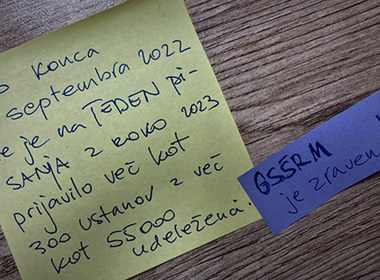 o konca
septembra 2022
e je na TEDEN pi-
SANJA Z ROKO 2023
prijavilo več kot
300 ustanov z več
kot 55000
udeleženci.
GSŠRM
je zraven